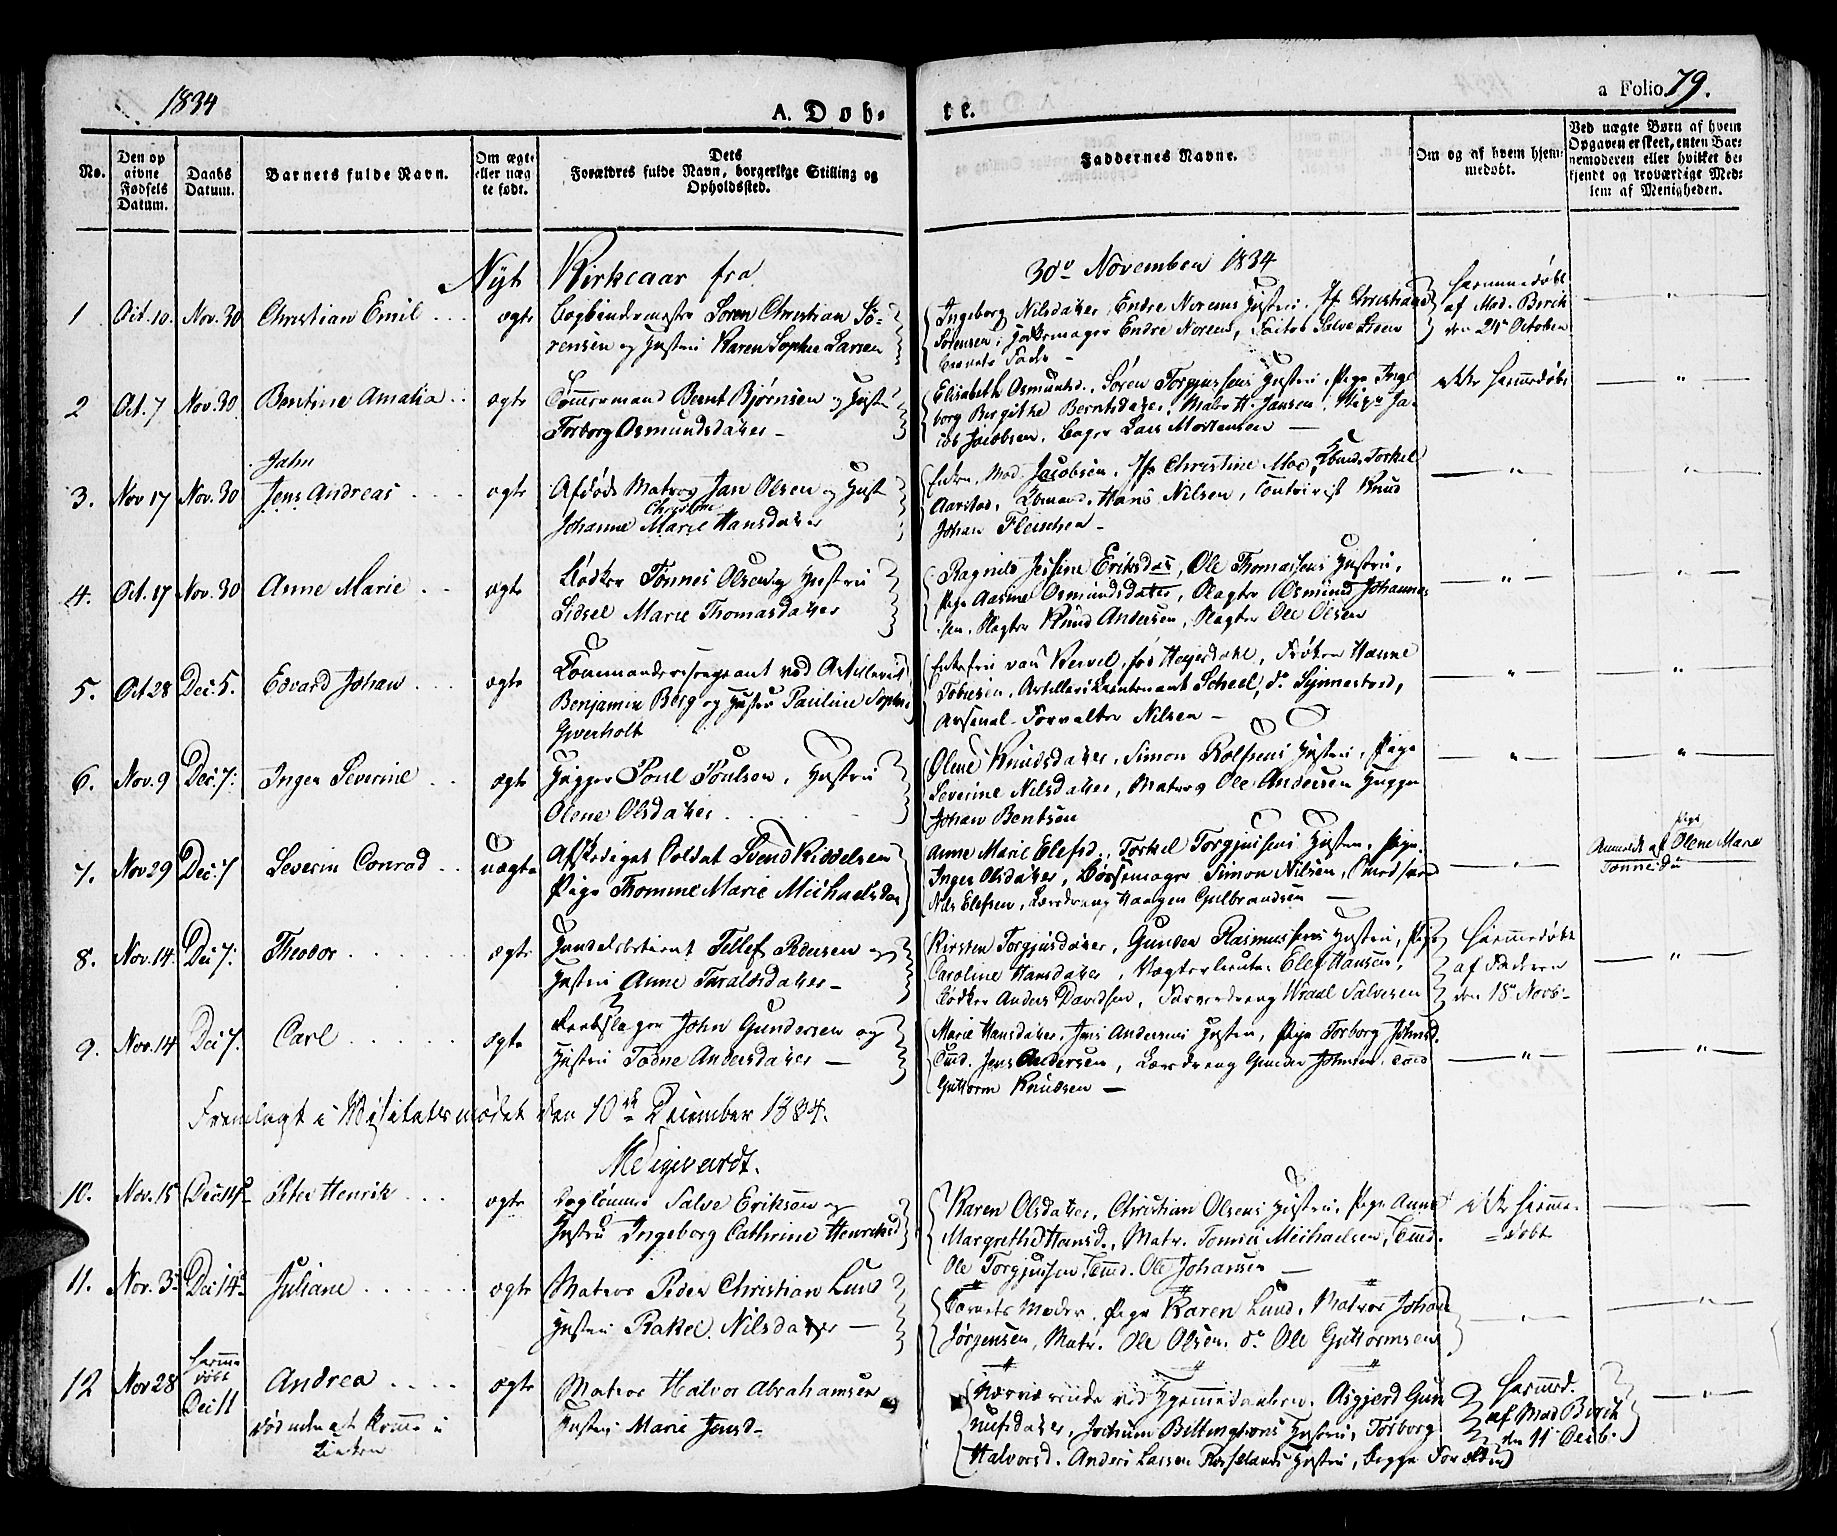 1834
A. Døb-
te.
a Folio 79.
No.
Den op
givne
Fødsels
Datum.
Daabs
Datum.
Barnets fulde Navn.
Om ægte
eller uæg
te født.
Dets
Forældres fulde Navn, borgerlige Stilling og
Opholdssted.
Faddernes Navne.
Om og af hvem hjem-
medøbt.
Ved uægte Børn af hvem
Opgaven er skeet, enten Bar-
nemoderen eller hvilket be-
kjendt og troværdige Med-
lem af Menigheden.
Nyt Kirkeaar fra 30te November 1834
1 Oct. 10. Nov. 30 Christian Emil ægte
Bogbindermester Søren Christian Sø-
rensen og Hustru Karen Sophie Larsen
Ingeborg Nilsdatter, Endre Norems Hustru, Jfr Christiane
Sørensen, Endre Norems, Salve
Barnets Fader
hjemmedøbt
af Mad. Birch
den 24de October
2 Oct. 7 Nov. 30 Bentine Amalia ægte
Tømmermand Bernt Bjørnsen og Hustru
Torborg Osmundsdatter
Elisabeth Osmundsd., Søren Torgjussens Hustru, Pige Inge
borg Birgithe Berntsdatter, Matr. H. Jansen, Ja-
cob Jacobsen, Bager Lars Mortensen
ikke hjemmedøbt
3. Nov 17 Nov. 30 Jahn
Jens Andreas ægte
Afdøde Matros Jan Olsen og Hustru
Christine
Johanne Marie Hansdatter
Enken, Mad. Jacobsen, Jfr Christine Moe, Torkel
Aarstad, Hans Nilsen, Knud
Johan Fleischer
4. Oct. 17 Nov. 30 Anne Marie ægte
Bødker Tønnes Olsen og Hustru
Sidsel Marie Thomasdatter
Ragnild Jessine Eriksdat, Ole Thomassens Hustru,
Pige Aasine Osmundsdatter, Slagter Osmund Johannes
sen, Slagter Knud Andersen, Slagter Ole Olsen
5. Oct 28 Dec. 5. Edvard Johan ægte
Commandeersergeant ved Artilleriet
Benjamin Berg og Hustru Pauline Sophie
Gverholt
Enkefru von Krevel, fød Heyerdahl, Frøken Hanne
Tobiesen, Artillerie Lieutenant Scheel, do Synnestvedt,
Arsenal-Forvalter Nilsen
6. Nov. 9 Dec. 7. Inger Severine ægte
Hugger Poul Poulsen, Hustru
Olene Olsdatter
Olene Knudsdatter, Simon Rolfsens Hustru, Pige
Severine Nilsdatter, Matros Ole Andersen, Hugger
Johan Bentsen
7. Nov 29 Dec. 7 Severin Conrad uægte
Afskediget Soldat Svend Kittelsen
Pige Thomme Marie Michaelsdat
Anne Marie Elefsd., Torkel Torgjussens Hustru, Pige
Inger Olsdatter, Bøssemager Simon Nilsen,
Nils Elefsen, Læredreng Haagen Gulbrandsen
Pige
Anmeldt af Olene Marie
8. Nov. 14. Dec 7. Theodor ægte
Handelsbetjent Tellef Pedersen og
Hustru Anne Taraldsdatter
Kirsten Torgjusdatter, Gunder Rasmussens Hustru, Pige
Caroline Hansdatter, Elef Hansen,
Bødker Anders Davidsen, Wraal Salvesen
hjemmedøbt
af Faderen
den 18de Novb.
9. Nov. 14 Dec 7. Carl ægte
Reebslager John Gundersen og
Hustru Todne Andersdatter
Marie Hansdatter, Jens Andersens Hustru, Pige Torborg Johnsd.
Tmd. Jens Andersen, Læredreng Gunder Johnsen,
Guttorm Knudsen
Fremlagt i Visitatsmødet den 10de December 1834.
10. Nov. 15 Dec 14 Peter Henrik ægte
Dagleier Salve Eriksen og
Hustru Ingeborg Cathrine Henriksd
Karen Olsdatter, Christian Olsens Hustru, Pige Anne
Margrethe Hansd., Matr. Tønnes Michaelsen, Tmd.
Ole Torgjussen, Tmd. Ole Johansen
ikke hjemme-
døbt
11. Nov. 3 Dec 14 Juliane ægte
Matros Peder Christian Lund
Hustru Rakel Nilsdatter
Barnets Moder, Pige Karen Lund, Matros Johan
Jørgensen, Matr. Ole Olsen, do Ole Guttormsen
12 Nov 28 hjemme
døbt
Dec 11 Andrea ægte
død uden at komme i
Kirken
Matros Halvor Abrahamsen
Hustru Marie Jensd
Nærværende ved Hjemmedaaben, Asgjerd Gun
nufsdatter, Jochum Hustru, Torborg
Halvorsd. Anders Lassen Hustru, begge Forældre
hjemmed.
af Mad Birch
den 11 Decb.